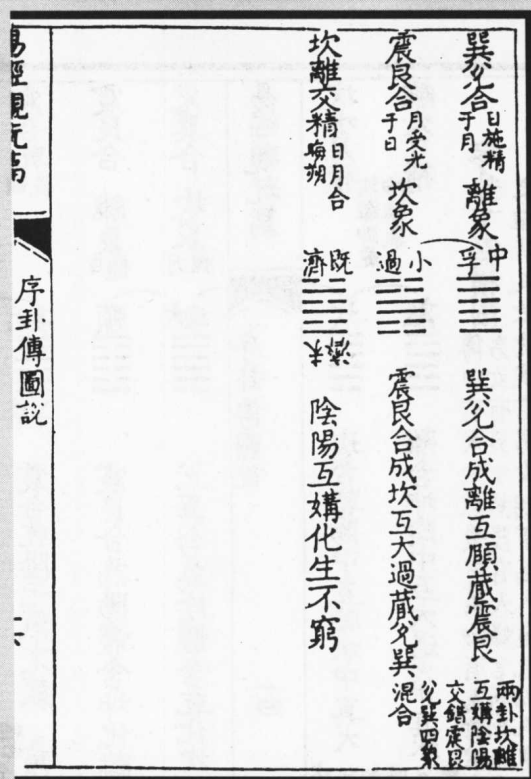 巽兊合日施精于月 離象 中孚 巽兊合成離互頤蔵震艮 兩卦坎離互媾陰陽交錯震艮兊巽四象
震艮合月受光于日 坎象 小過 震艮合成坎互大過蔵兊巽 混合
坎離交精日月合晦朔 既濟 未濟 陰陽互媾化生不窮
易經觀玩萹
序卦傳圖說